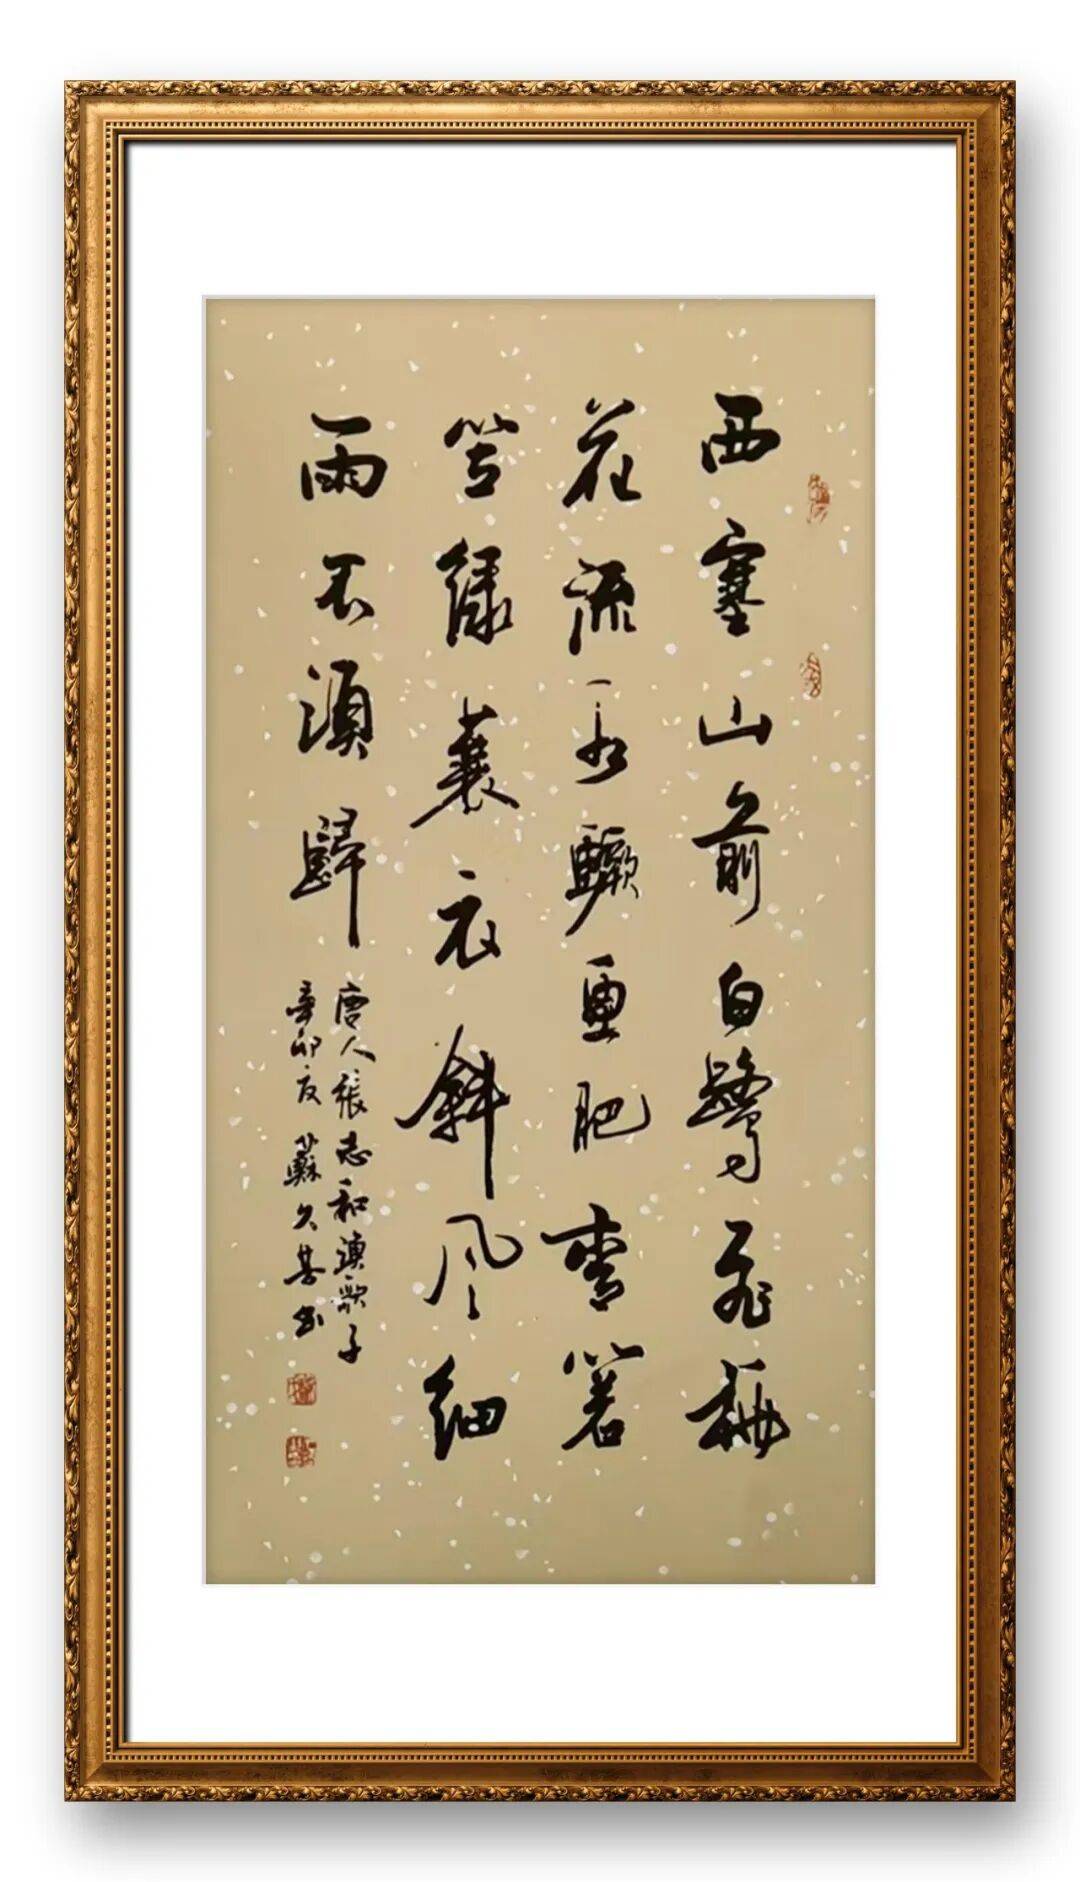 西塞山前白鷺飛桃
花流水鱖魚肥青箬
笠綠蓑衣斜风細
雨不須歸
唐人張志和漁歌子
辛卯夏 蘇久书